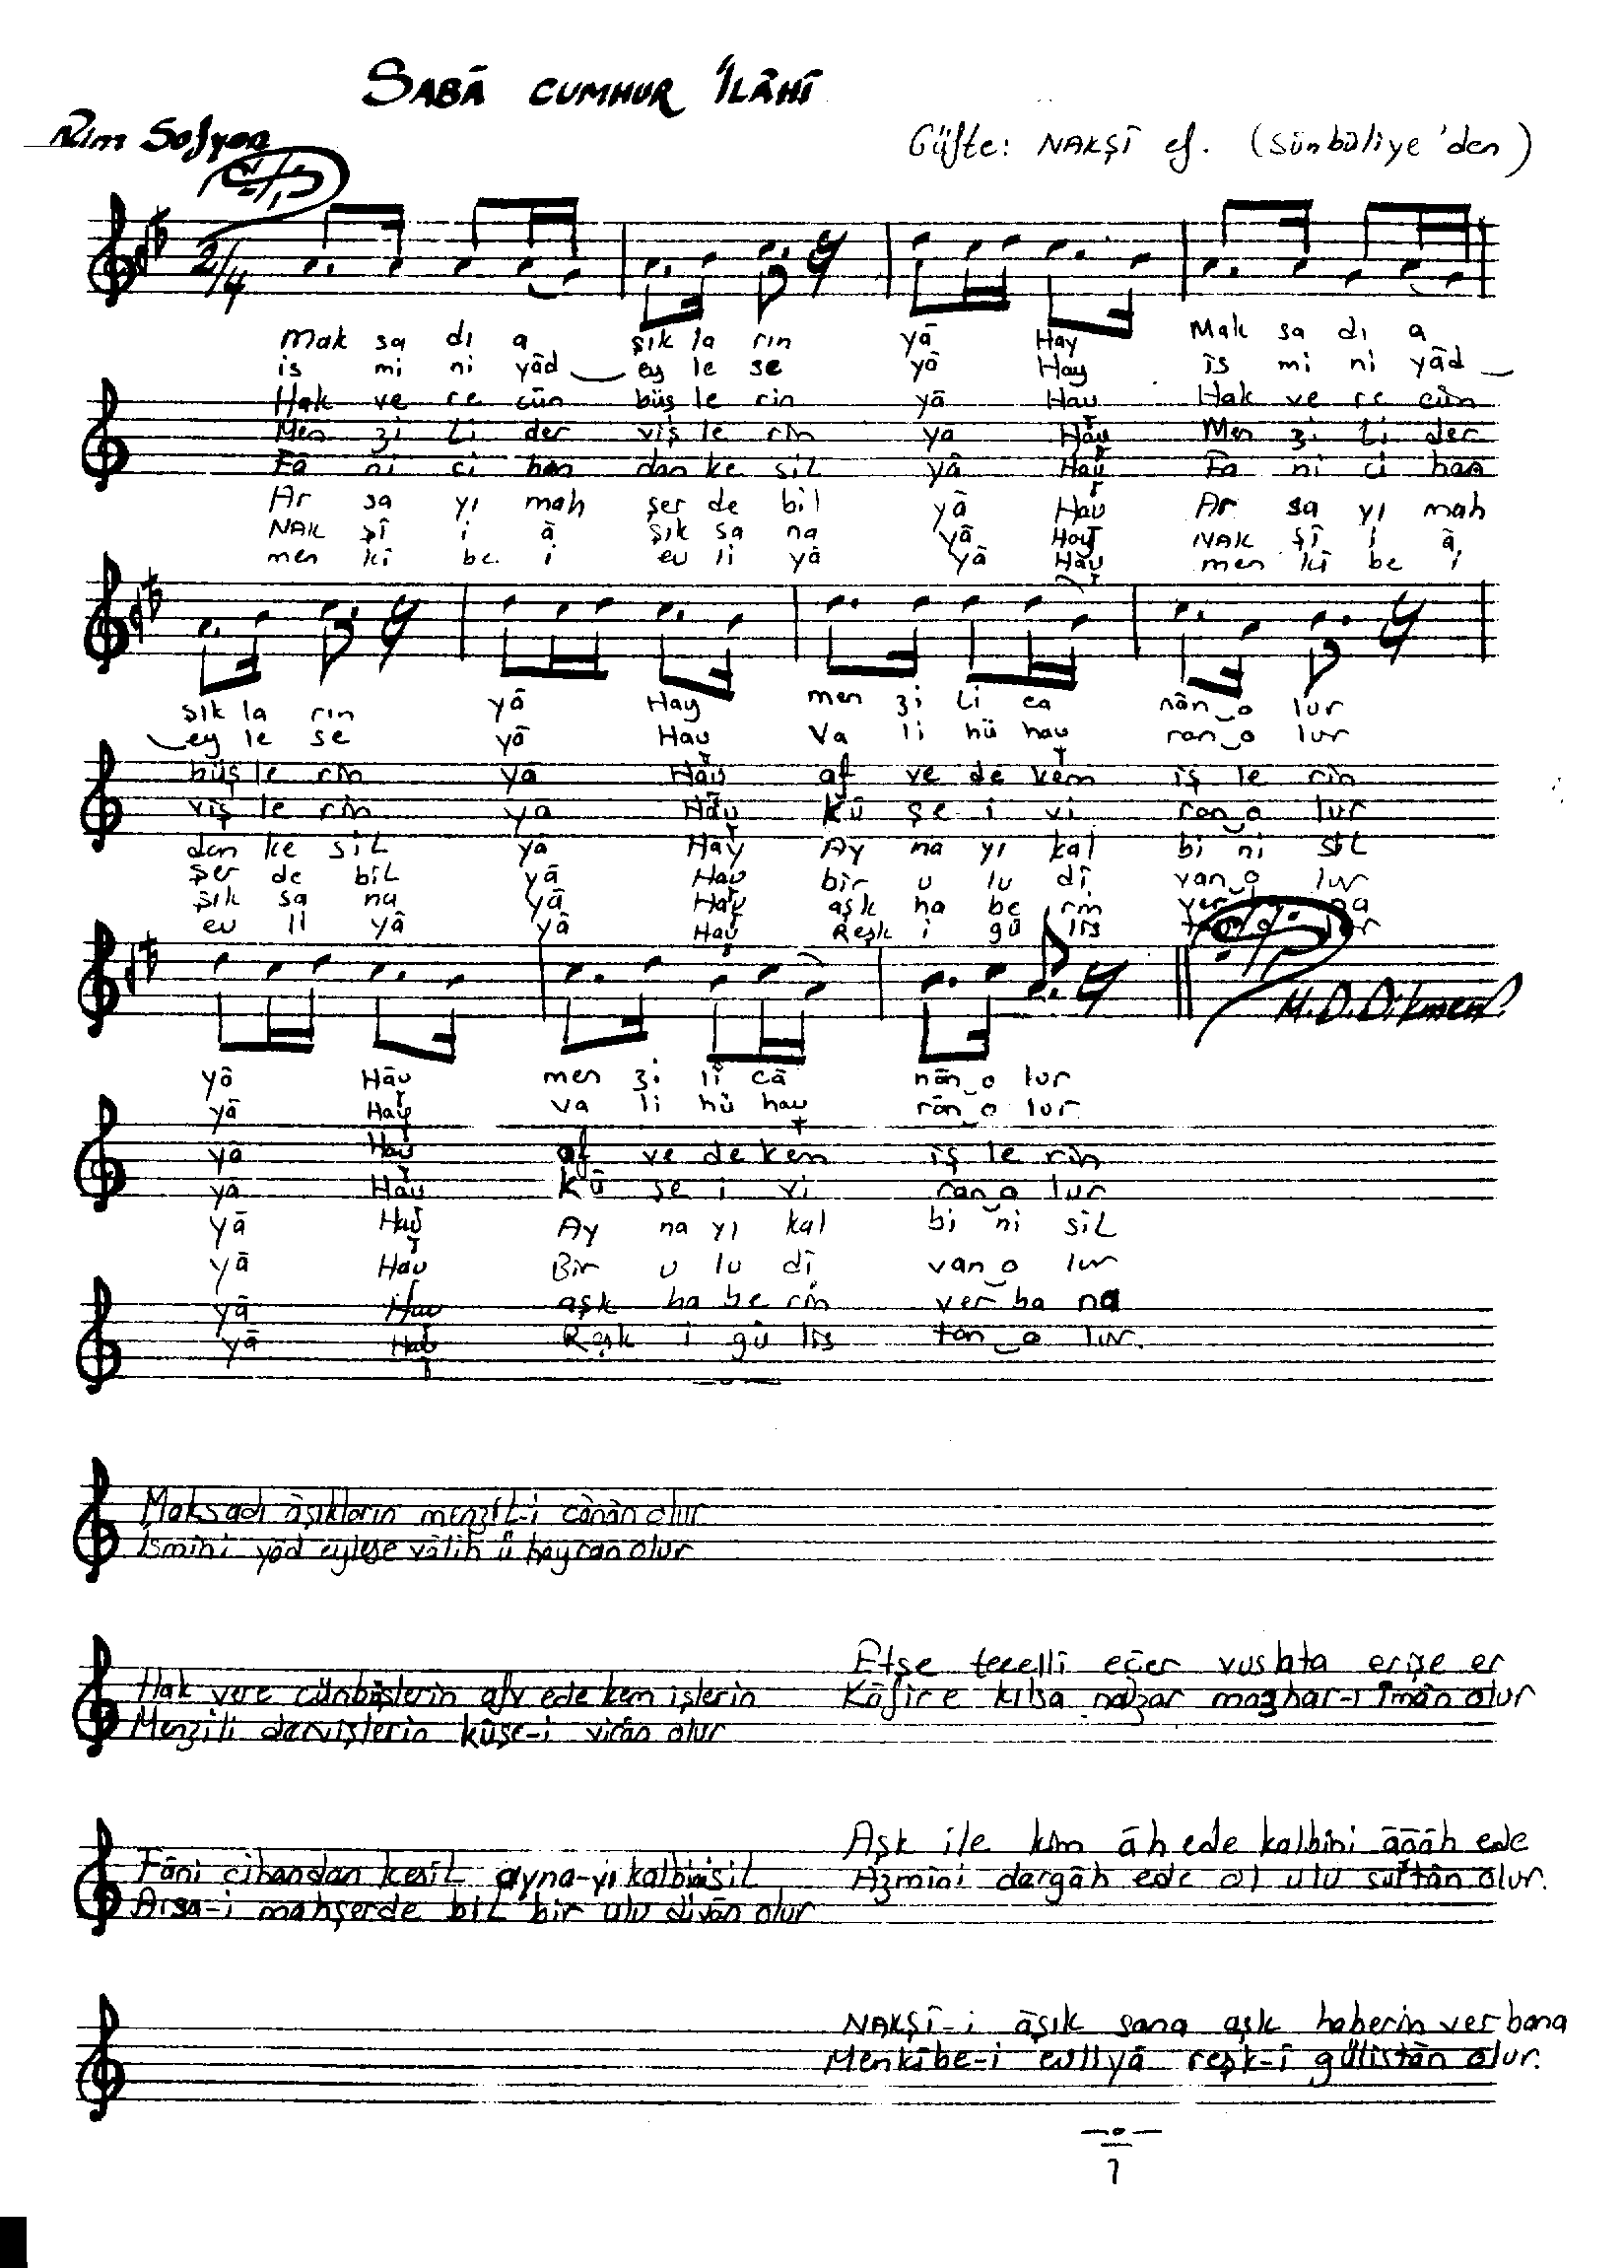 SABÂ CUMHUR İLÂHÎ
Nim Sofyan
Güfte: NAKŞÎ ef. (Sünbüliye'den)
2/4
Mak sa dı a şık la rın yâ Hay Mak sa dı a
is mi ni yâd ey le se yâ Hay is mi ni yâd
Hak ve re cün büş le rin yâ Hay Hak ve re cün
Men zi li der viş le rin ya Hay Men zi li der
Fâ ni ci han dan ke sil yâ Hay Fa ni ci han
Ar sa yı mah şer de bil yâ Hay Ar sa yı mah
NAK şî i â şık sa na yâ Hay NAK şî i â
men kî be i ev li yâ yâ Hay men kî be i
şık la rın yâ Hay men zi li ca nân o lur
ey le se yâ Hay Va li hü hay ran o lur
büş le rin yâ Hay af ve de kem iş le rin
viş le rin ya Hay kû şe i vi ran o lur
dan ke sil yâ Hay Ay na yı kal bi ni sil
şer de bil yâ Hay bir u lu dî van o lur
şık sa na yâ Hay aşk ha be rin ver ba na
ev li yâ yâ Hay Reşk i gü lis tan o lur
M.D.Dikmen
yâ Hay men zi li câ nân o lur
yâ Hay va li hü hay rân o lur
yâ Hay af ve de kem iş le rin
yâ Hay kû şe i vi ran o lur
yâ Hay Ay na yı kal bi ni sil
yâ Hay Bir u lu dî van o lur
yâ Hay aşk ha be rin ver ba na
yâ Hay Reşk i gü lis tan o lur.
Maksadı âşıkların menzil-i cânân olur
İsmini yâd eylese vâlih ü hayran olur
Hak vere cünbüşlerin afv ede kem işlerin
Menzili dervişlerin kûşe-i virân olur
Fâni cihandan kesil ayna-yı kalbini sil
Arsa-i mahşerde bil bir ulu divân olur
Etse tecellî eğer vuslata erişe er
Kâfire kılsa nazar mazhar-ı îmân olur
Aşk ile kim âh ede kalbini âgâh ede
Azmini dergâh ede ol ulu sultân olur.
NAKŞÎ-i âşık sana aşk haberin ver bana
Menkîbe-i evliyâ reşk-î gülistân olur.